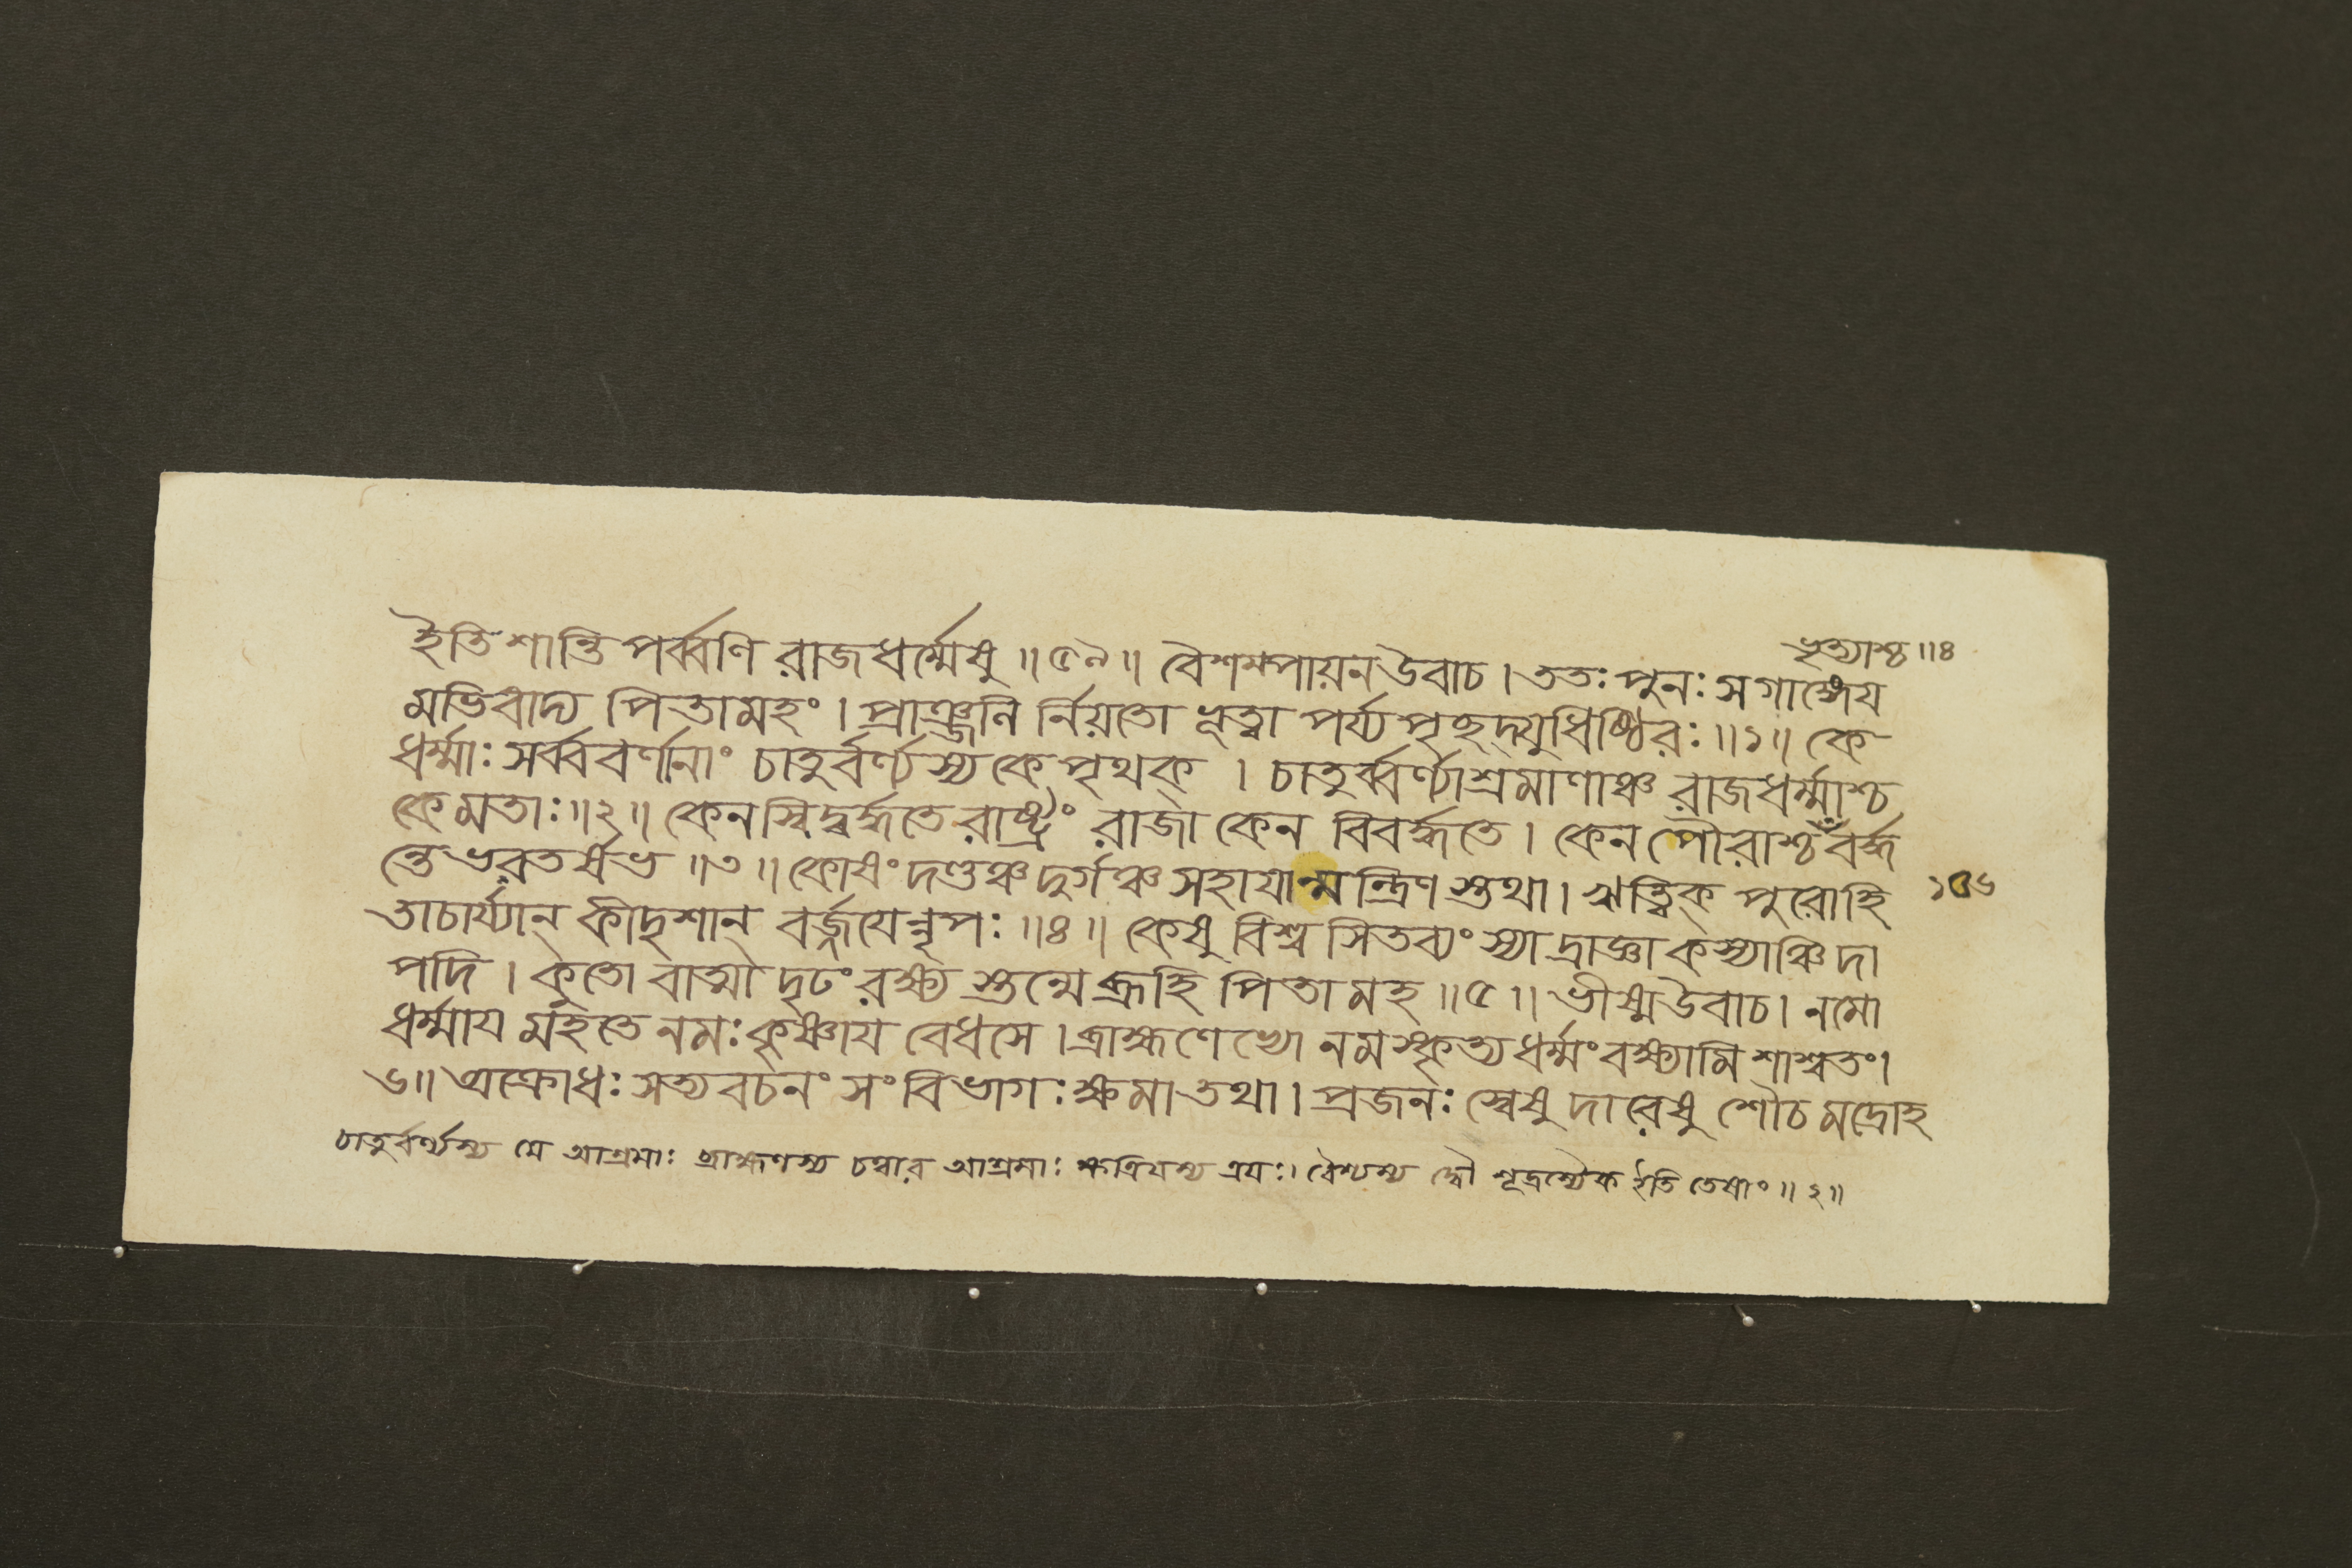 ভৃত্যাশ্চ॥৪
ইতি শান্তি পর্ব্বণি রাজধর্ম্মেষু॥৫৯॥ বৈশম্পায়ন উবাচ। ততঃ পুনঃ সগাঙ্গেয
মভিবাদ্য পিতামহং। প্রাঞ্জলি র্নিয়তো ভূত্বা পর্য্য পৃছদ্যুধিষ্ঠিরঃ॥১॥ কে
ধর্ম্মাঃ সর্ব্ববর্ণানাং চাতুর্বর্ণ্যস্য কে পৃথক্। চাতুর্ব্বর্ণ্যাশ্রমাণাঞ্চ রাজধর্ম্মাশ্চ
কে মতাঃ॥২॥ কেন স্বিদ্বর্দ্ধতে রাষ্ট্রং রাজা কেন বিবর্দ্ধতে। কেন পৌরাশ্চ বর্দ্ধ
ন্তে ভরতর্ষভ॥৩॥ কোষং দণ্ডঞ্চ দুর্গঞ্চ সহাযান্মন্ত্রিণ স্তথা। ঋত্বিক্ পুরোহি
১০৬
তাচার্য্যান্ কীদৃশান্ বর্জ্জযেন্নৃপঃ॥৪॥ কেষু বিশ্বসিতব্যং স্যাদ্রাজ্ঞা কস্যাঞ্চিদা
পদি। কুতো বাত্মা দৃঢং রক্ষ্য স্তন্মে ব্রূহি পিতামহ॥৫॥ ভীষ্ম উবাচ। নমো
ধর্ম্মায মহতে নমঃ কৃষ্ণায বেধসে। ব্রাহ্মণেভ্যো নমস্কৃত্য ধর্ম্মং বক্ষ্যামি শাশ্বতং।
৬॥ অক্রোধঃ সত্যবচনং সংবিভাগঃ ক্ষমা তথা। প্রজনঃ স্বেষু দারেষু শৌচমদ্রোহ
চাতুর্বর্ণ্যস্য যে আশ্রমাঃ ব্রাহ্মণস্য চত্বার আশ্রমাঃ ক্ষত্রিযস্য ত্রযঃ। বৈশ্যস্য দ্বৌ শূদ্রস্যৈক ইতি তেষাং॥২॥